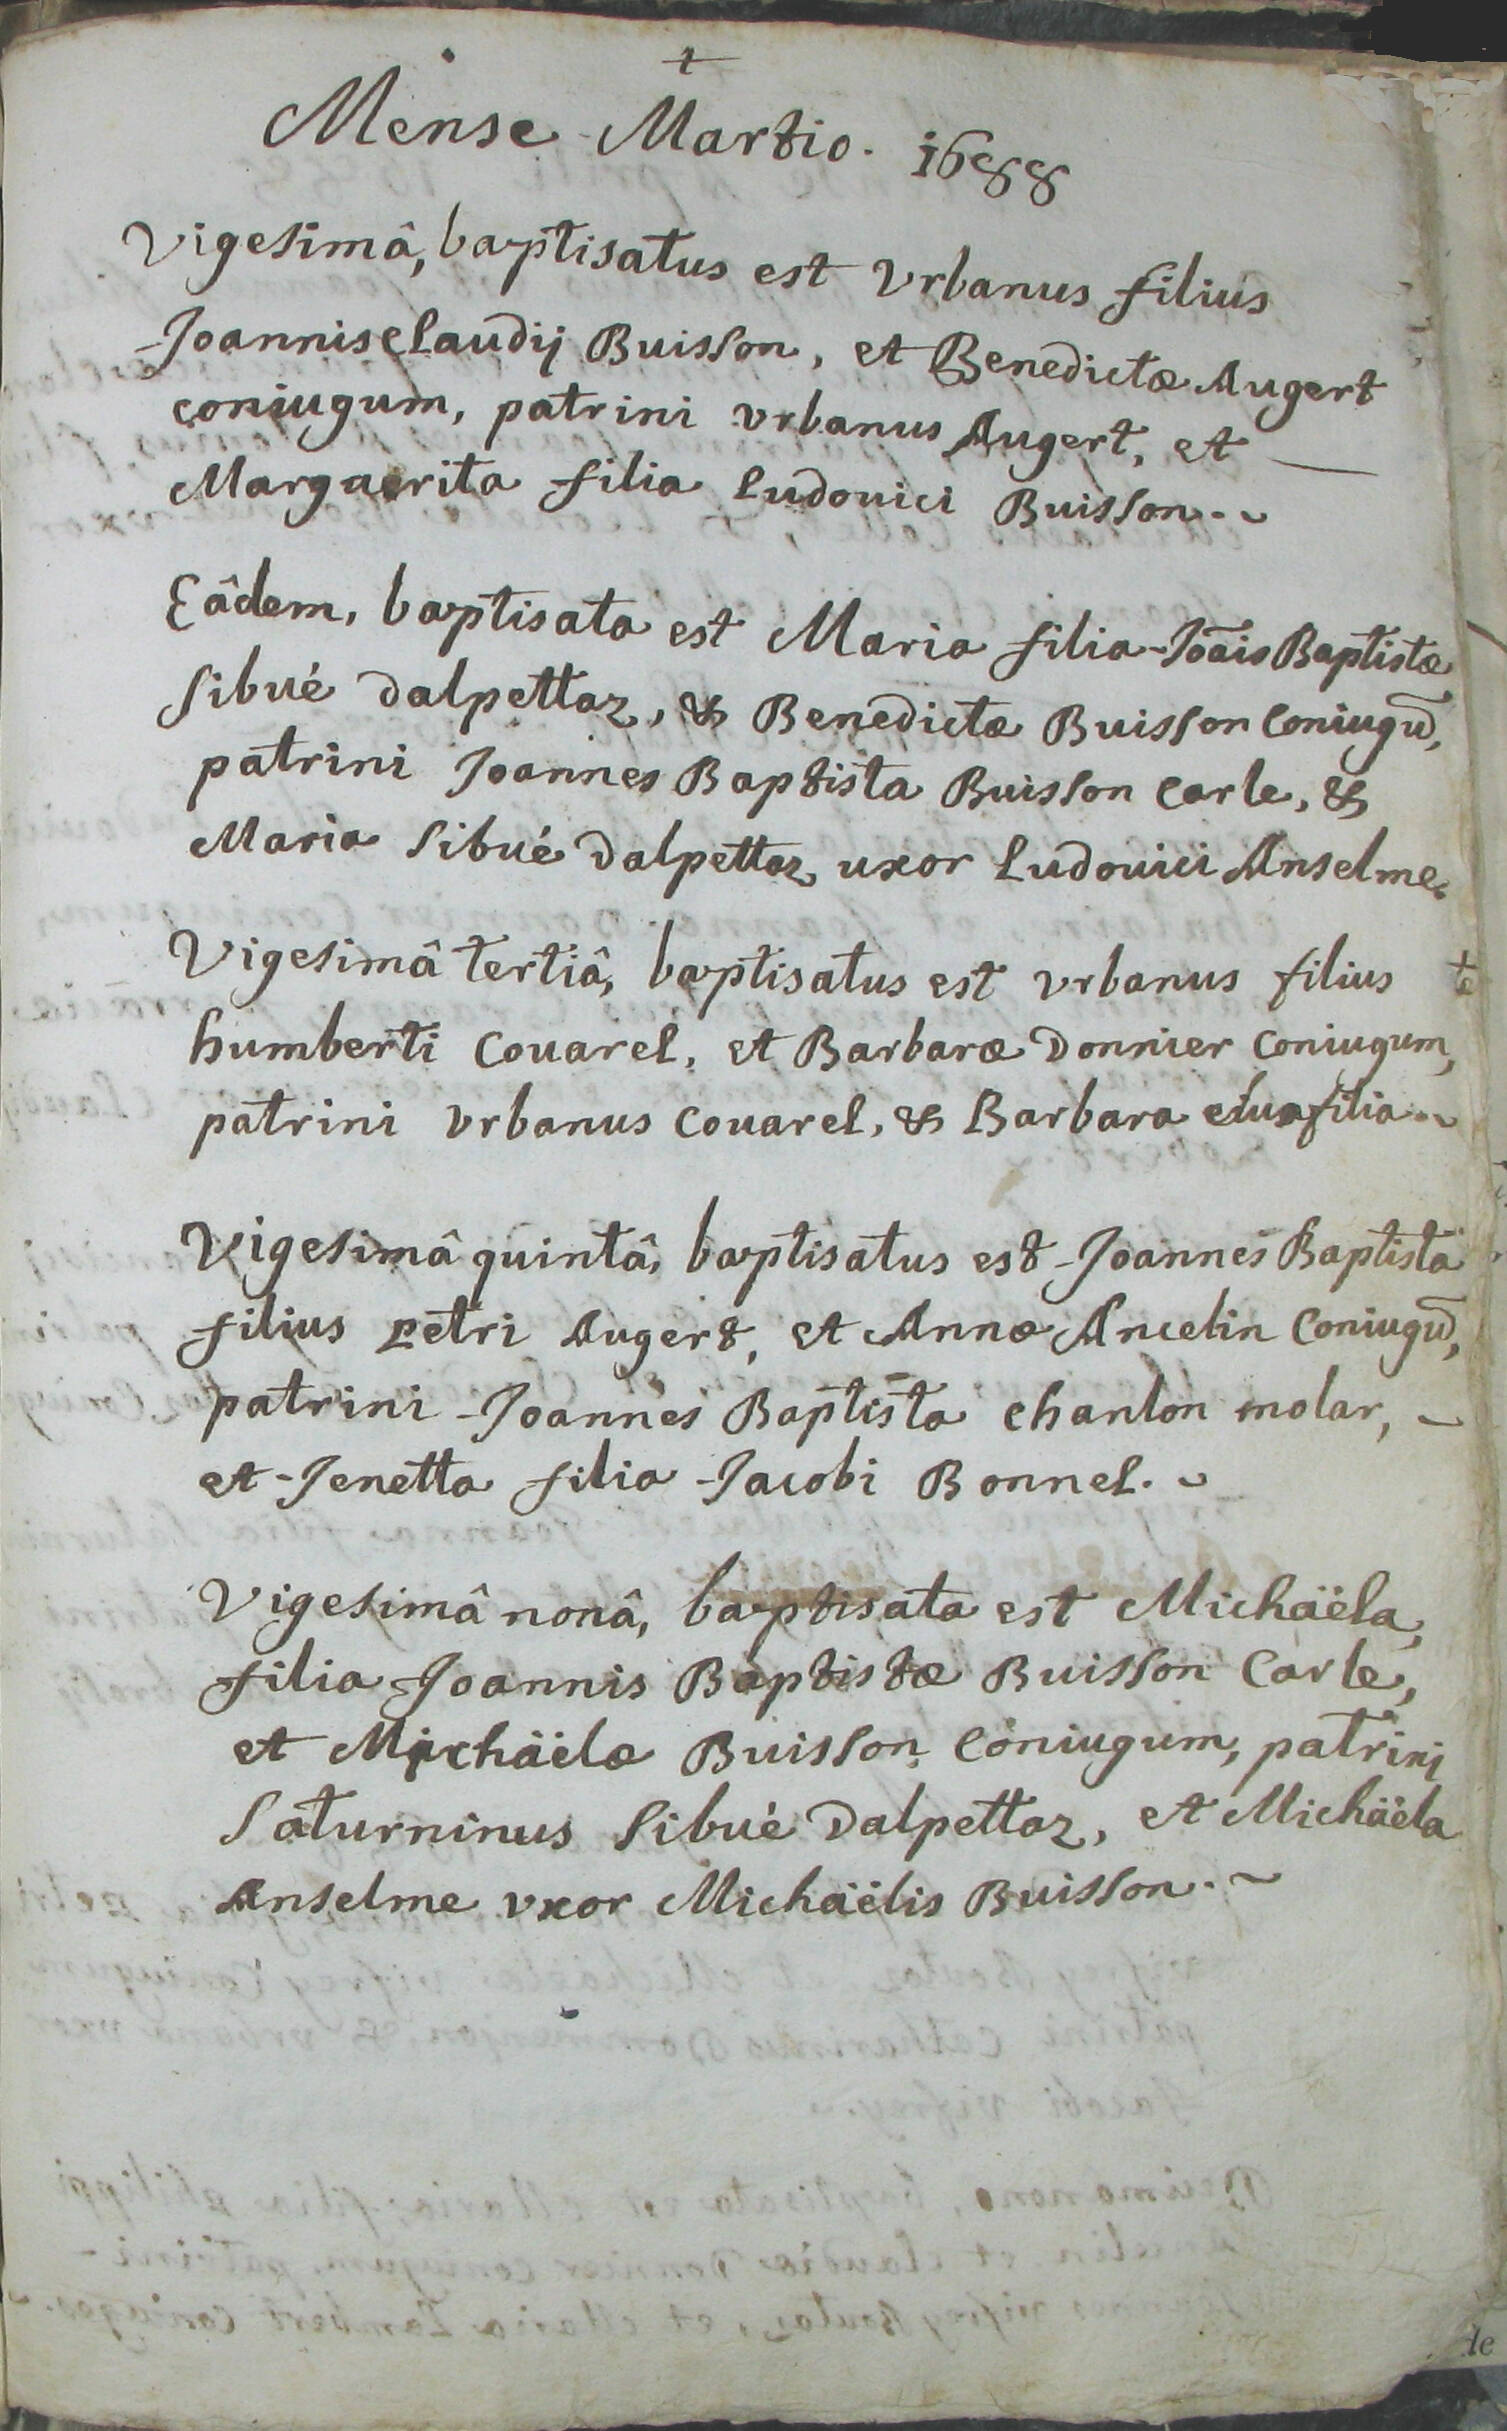 +
Mense Martio. 1688
Vigesimâ, baptisatus est Vrbanus filius
Joannisclaudij Buisson, et Benedictæ Augert
coniugum, patrini vrbanus Augert, et
Marguerita filia Ludouici Buisson.
Eâdem, baptisata est Maria filia Joãis Baptistæ
Sibué dalpettaz, & Benedictæ Buisson Coniugũ,
patrini Joannes Baptista Buisson Carle, &
Maria Sibué dalpettaz uxor Ludouici Anselme.
Vigesimâ tertiâ, baptisatus est vrbanus filius
humberti Couarel, et Barbaræ Donnier Coniugum,
patrini vrbanus Couarel, & Barbara eius filia
Vigesimâ quintâ, baptisatus est Joannes Baptista
filius petri Augert, et Annæ Ancelin Coniugũ,
patrini Joannes Baptista chanlon molar,
et Jenetta filia Jacobi Bonnel.
Vigesimâ nonâ, baptisata est Michäela,
filia Joannis Baptistæ Buisson Carle,
et Michäelæ Buisson Coniugum, patrini
Saturninus Sibué Dalpettaz, et Michäela
Anselme vxor Michäelis Buisson.